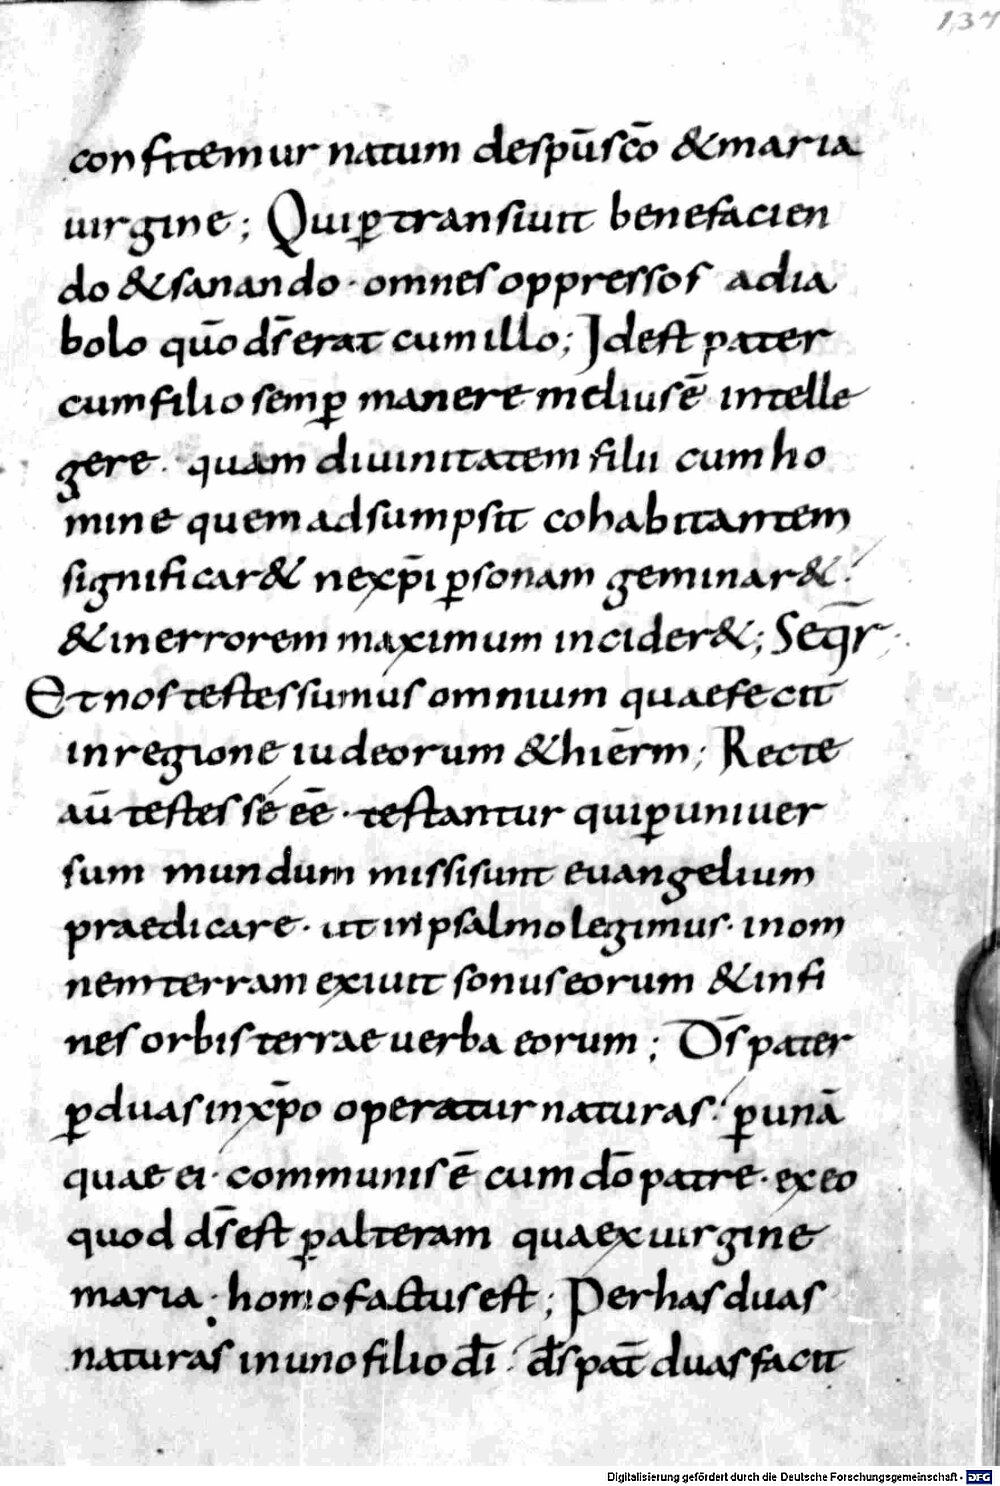 137
confitemur natum de sp̄u sc̄o & maria
uirgine; Qui ꝑtransiuit benefacien
do & sanando · omnes oppressos a dia
bolo qūo d̄s erat cum illo; Id est pater
cum filio semꝑ manere melius ē intelle
gere · quam diuinitatem filii cum ho
mine quem adsumpsit cohabitantem
significar& ne xp̄i ꝑsonam geminar&
& in errorem maximum incider&; Seq̄r
Et nos testes sumus omnium quae fecit
in regione iudeorum & hierm̄; Recte
aū testes se eē · testantur qui ꝑ uniuer
sum mundum missi sunt euangelium
praedicare · ut in psalmo legimus · in om
nem terram exiuit sonus eorum & in fi
nes orbis terrae uerba eorum; D̄s pater
ꝑ duas in xp̄o operatur naturas · ꝑ unā
quae ei · communis ē cum dō patre · ex eo
quod d̄s est ꝑ alteram quae ex uirgine
maria · homo factus est; Per has duas
naturas in uno filio dī · d̄s pat̄ duas facit
Digitalisierung gefördert durch die Deutsche Forschungsgemeinschaft - DFG